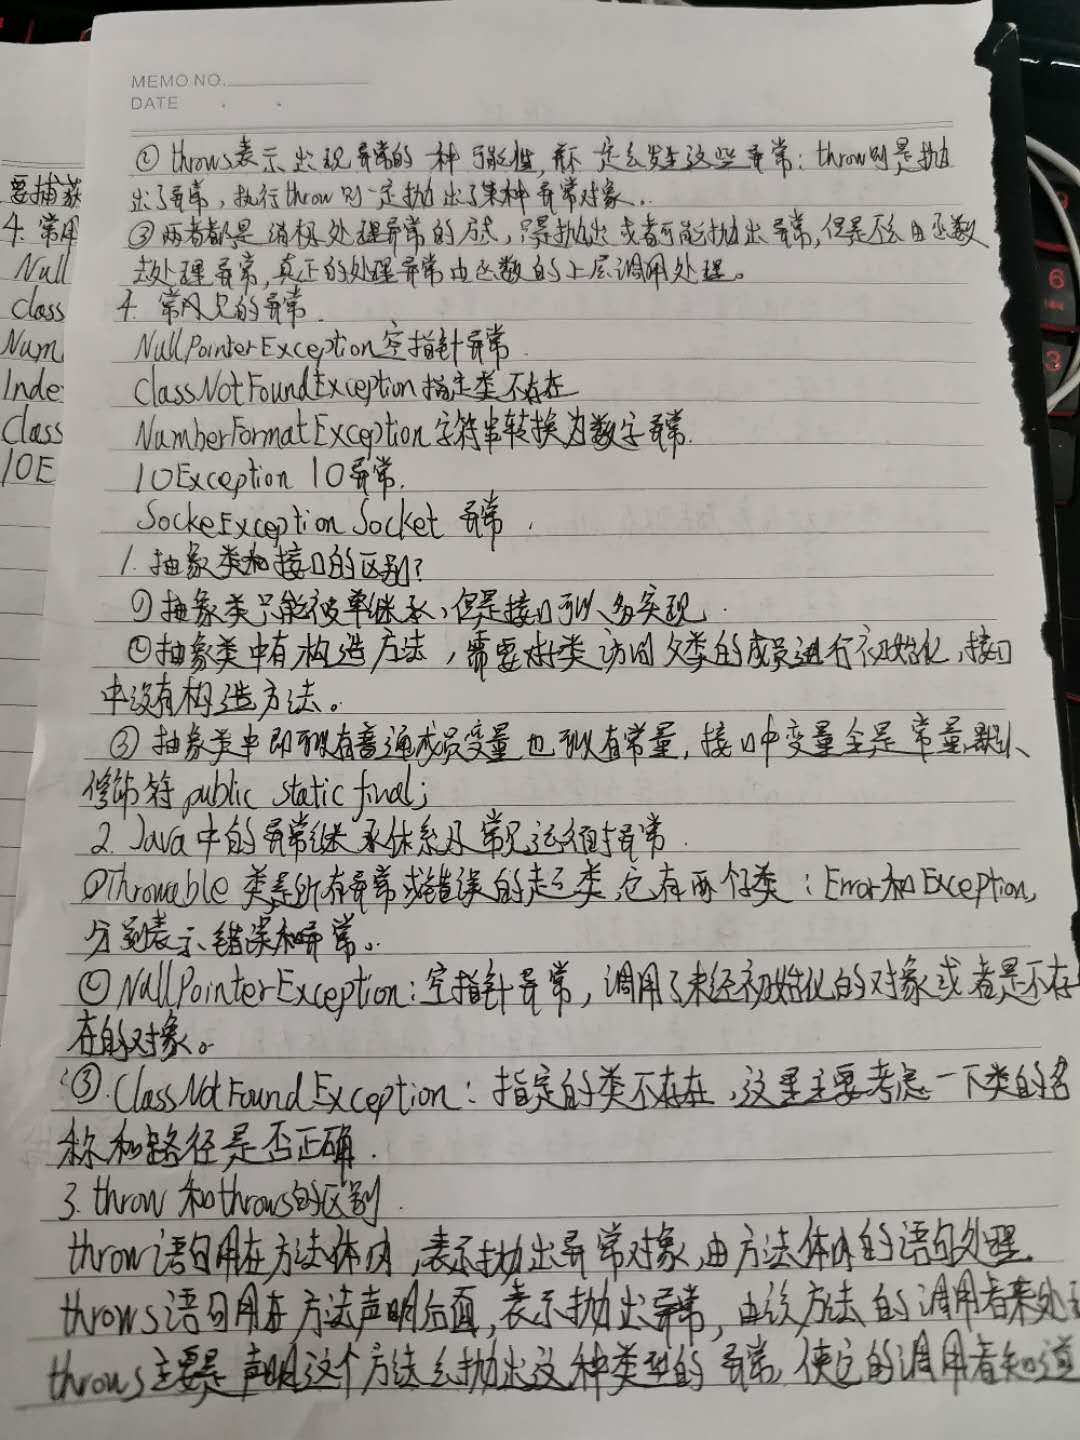 MEMO NO.
DATE
要捕获
4. 常用
Null
class
Num
Inde
Class
IOE
② throws表示出现异常的一种可能性,并不一定会发生这些异常:throw则是抛
出了异常,执行throw则一定抛出了某种异常对象。
③ 两者都是消极处理异常的方式,只是抛出或者可能抛出异常,但是不会由函数
去处理异常,真正的处理异常由函数的上层调用处理。
4. 常见的异常.
NullPointerException空指针异常.
ClassNotFoundException指定类不存在
NumberFormatException字符串转换为数字异常.
IOException IO异常.
SockeException Socket 异常.
1. 抽象类和接口的区别?
① 抽象类只能被单继承,但是接口可以多实现.
②抽象类中有构造方法,需要对类访问父类的成员进行初始化,接口
中没有构造方法。
③ 抽象类中即可以有普通成员变量也可以有常量,接口中变量全是常量,默认
修饰符 public static final;
2. Java中的异常继承体系及常见运行时异常.
①Throwable 类是所有异常或错误的超类,它有两个子类:Error和Exception,
分别表示错误和异常。
② NullPointerException:空指针异常,调用了未经初始化的对象或者是不存
在的对象。
③.ClassNotFoundException:指定的类不存在,这里主要考虑一下类的名
称和路径是否正确.
3. throw 和throws的区别.
throw语句用在方法体内,表示抛出异常对象,由方法体内的语句处理.
throws语句用在方法声明后面,表示抛出异常,由该方法的调用者来处理
throws主要是声明这个方法会抛出这种类型的异常,使它的调用者知道